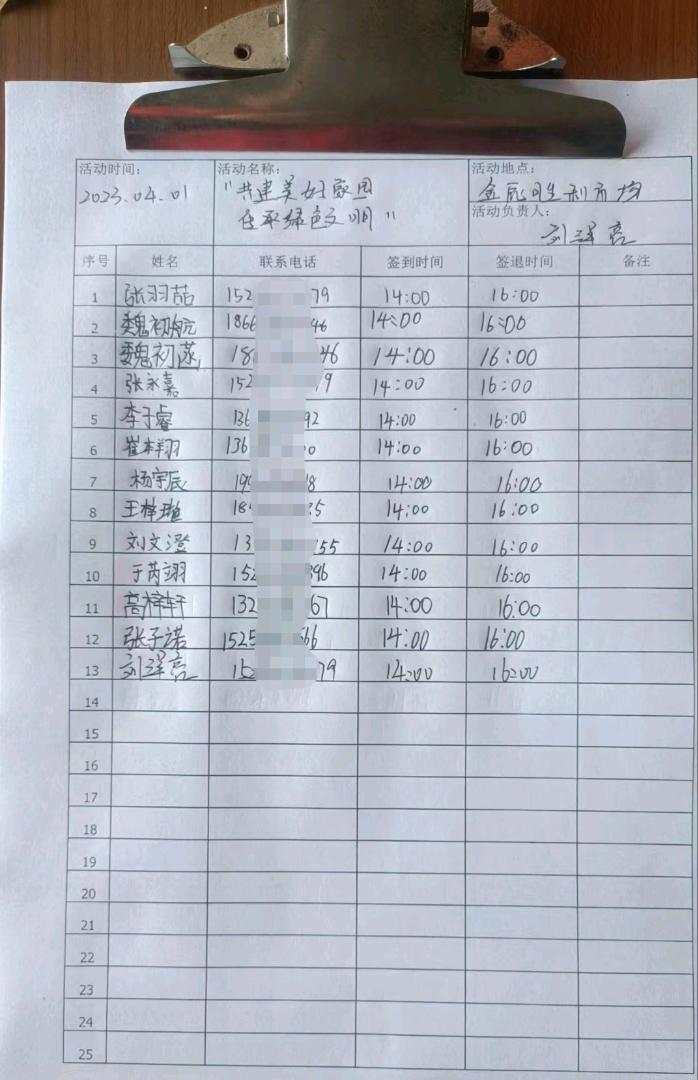 活动时间: 活动名称: 活动地点:
2023.04.01 "共建美好家园
活动负责人:
绿色文明"
刘洋亮
序号 姓名 联系电话 签到时间 签退时间 备注
1 张羽喆 152 79 14:00 16:00
2 魏初航 1866 46 14:00 16:00
3 魏初 18 46 14:00 16:00
4 张永嘉 152 9 14:00 16:00
5 李子睿 136 92 14:00 16:00
6 崔梓翔 136 0 14:00 16:00
7 杨宇辰 199 8 14:00 16:00
8 王梓 18 5 14:00 16:00
9 刘文澄 13 55 14:00 16:00
10 于芮翊 152 96 14:00 16:00
11 高梓轩 132 67 14:00 16:00
12 张子诺 1525 66 14:00 16:00
13 刘洋亮 152 79 14:00 16:00
14
15
16
17
18
19
20
21
22
23
24
25